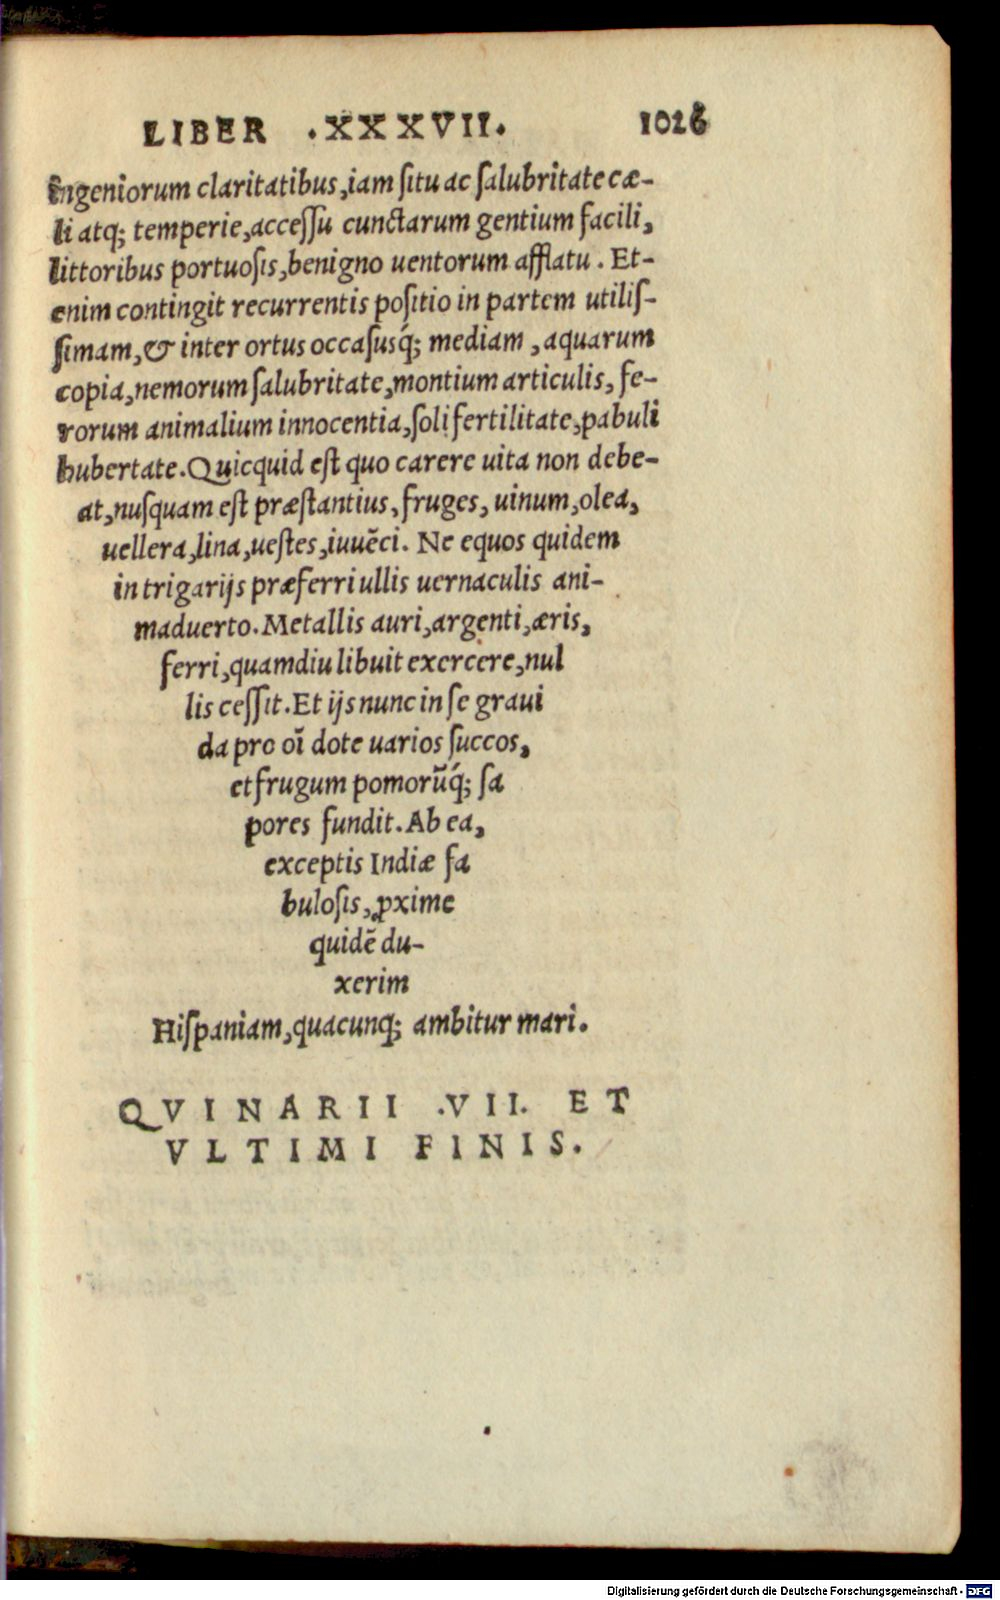 LIBER .XXXVII. 1026
ingeniorum claritatibus, iam ſitu ac ſalubritate cæ-
li atq; temperie, acceſſu cunctarum gentium facili,
littoribus portuoſis, benigno uentorum afflatu. Et-
enim contingit recurrentis poſitio in partem utiliſ-
ſimam, & inter ortus occaſusq́; mediam, aquarum
copia, nemorum ſalubritate, montium articulis, fe-
rorum animalium innocentia, ſoli fertilitate, pabuli
hubertate. Quicquid eſt quo carere uita non debe-
at, nuſquam eſt præſtantius, fruges, uinum, olea,
uellera, lina, ueſtes, iuuẽci. Ne equos quidem
in trigarijs præferri ullis uernaculis ani-
maduerto. Metallis auri, argenti, æris,
ferri, quamdiu libuit exercere, nul
lis ceſſit. Et ijs nunc in ſe graui
da pro oĩ dote uarios ſuccos,
et frugum pomorũq́; ſa
pores fundit. Ab ea,
exceptis Indiæ fa
buloſis, ꝓxime
quidẽ du-
xerim
Hiſpaniam, quacunq; ambitur mari.
QVINARII .VII. ET
VLTIMI FINIS.
Digitalisierung gefördert durch die Deutsche Forschungsgemeinschaft - DFG